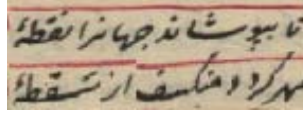 تا بپوشاند جهانرا نقطهٔ
مهر گردد منکسف از شقطهٔ